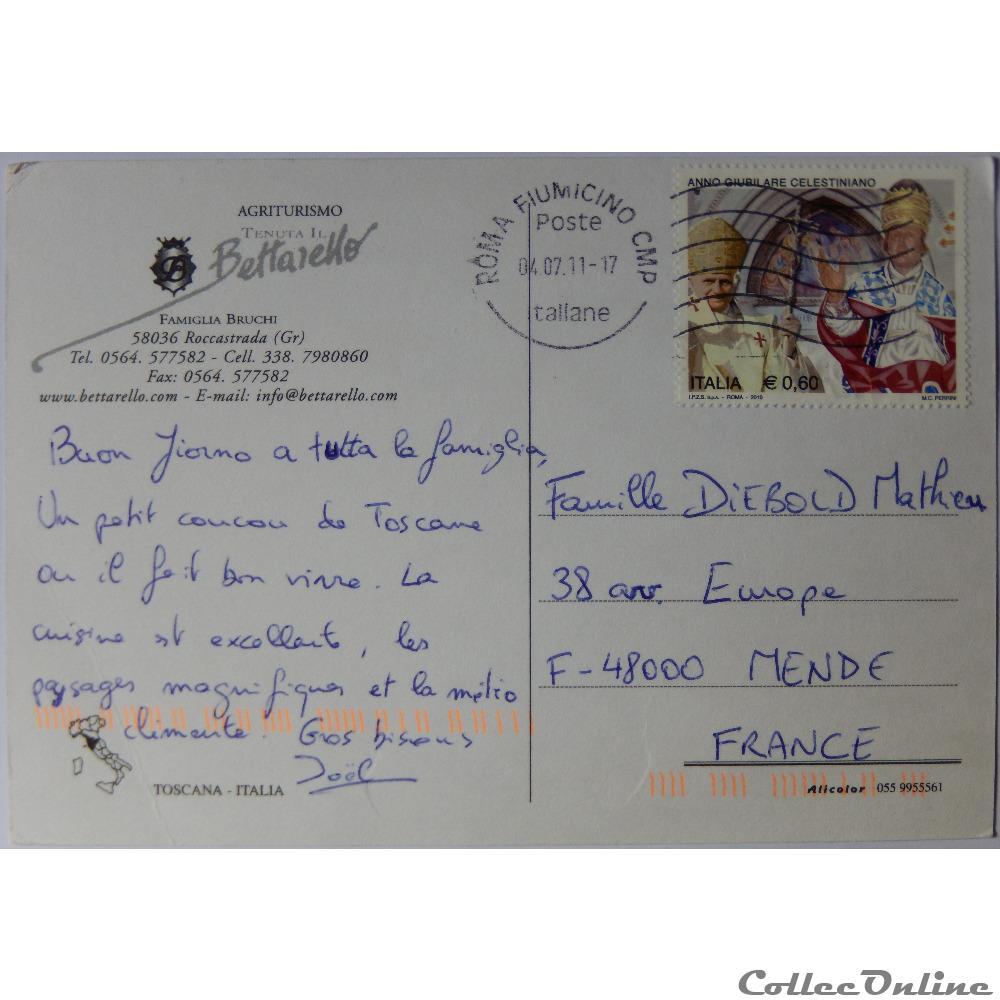 AGRITURISMO
TENUTA IL
Bettarello
FAMIGLIA BRUCHI
58036 Roccastrada (Gr)
Tel. 0564. 577582 - Cell. 338. 7980860
Fax: 0564. 577582
www.bettarello.com - E-mail: info@bettarello.com
Buon Jiorno a tutta la famiglia,
Un petit coucou de Toscane
ou il fait bon vivre. La
cuisine est excellente, les
paysages magnifiques et la météo
clémente. Gros bisous
Joël
TOSCANA - ITALIA
ROMA FIUMICINO CMP
Poste
04.07.11-17
Italiane
ANNO GIUBILARE CELESTINIANO
ITALIA € 0,60
I.P.Z.S. S.p.A. - ROMA - 2010
M.C. PERRINI
Famille DIEBOLD Mathieu
38 av. Europe
F-48000 MENDE
FRANCE
Alicolor 055 9955561
CollecOnline